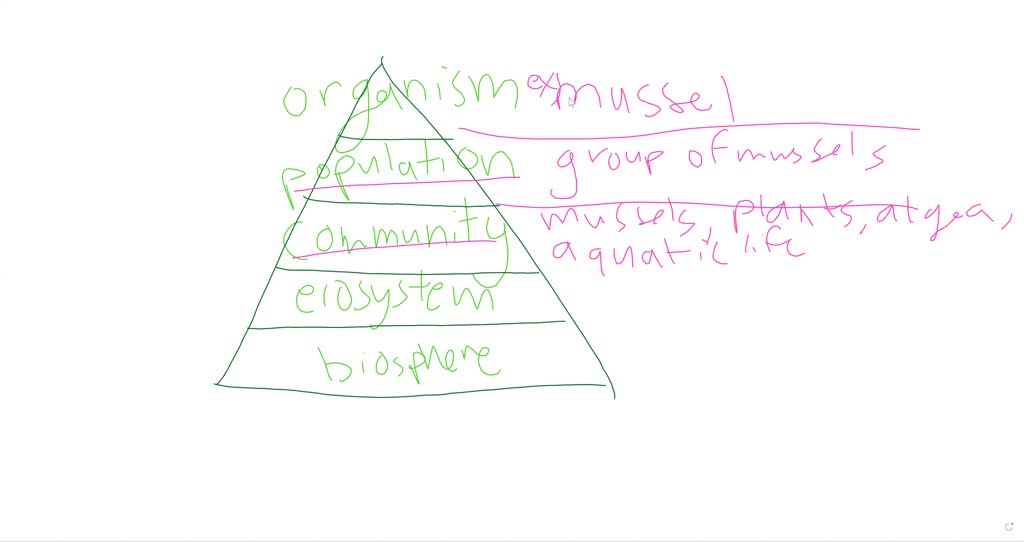 organism ex mussel
population group of mussels
community mussels, plants, algea,
aquatic life
ecosystem
biosphere